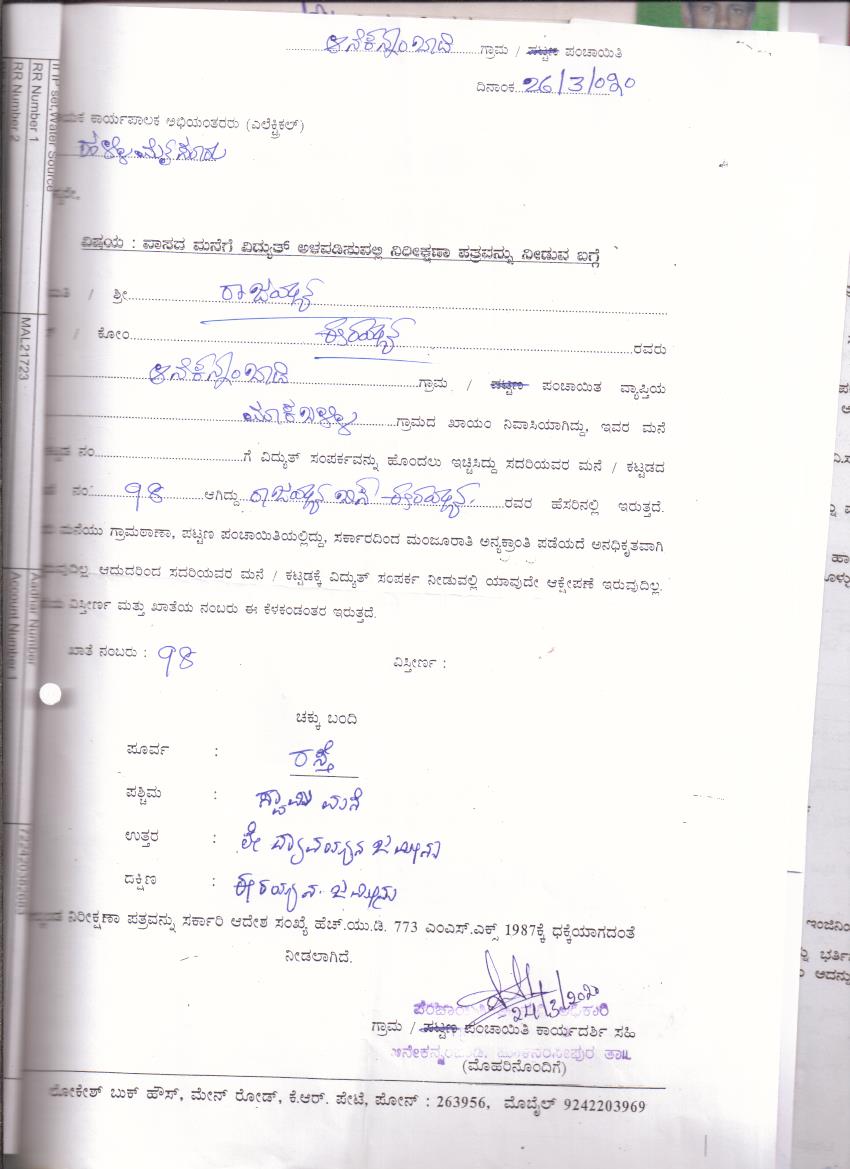 ಆನೆಕನ್ನಂಬಾಡಿ ಗ್ರಾಮ / ಪಟ್ಟಣ ಪಂಚಾಯಿತಿ
ದಿನಾಂಕ 26/3/020
ಯಕ ಕಾರ್ಯಪಾಲಕ ಅಭಿಯಂತರರು (ಎಲೆಕ್ಟ್ರಿಕಲ್)
ಹಳ್ಳಿಮೈಸೂರು
ವಿಷಯ : ವಾಸದ ಮನೆಗೆ ವಿದ್ಯುತ್ ಅಳವಡಿಸುವಲ್ಲಿ ನಿರೀಕ್ಷಣಾ ಪತ್ರವನ್ನು ನೀಡುವ ಬಗ್ಗೆ
ಮತಿ / ಶ್ರೀ ರಾಜಯ್ಯನ
/ ಕೋಂ ಈರಯ್ಯನ ರವರು
ಆನೆಕನ್ನಂಬಾಡಿ ಗ್ರಾಮ / ಪಟ್ಟಣ ಪಂಚಾಯಿತ ವ್ಯಾಪ್ತಿಯ
ಮಾಕಬಳ್ಳಿ ಗ್ರಾಮದ ಖಾಯಂ ನಿವಾಸಿಯಾಗಿದ್ದು, ಇವರ ಮನೆ
ನಂ ಗೆ ವಿದ್ಯುತ್ ಸಂಪರ್ಕವನ್ನು ಹೊಂದಲು ಇಚ್ಚಿಸಿದ್ದು ಸದರಿಯವರ ಮನೆ / ಕಟ್ಟಡದ
ನಂ 98 ಆಗಿದ್ದು ರಾಜಯ್ಯನ ಬಿನ್ ಈರಯ್ಯನ ರವರ ಹೆಸರಿನಲ್ಲಿ ಇರುತ್ತದೆ.
ಮನೆಯು ಗ್ರಾಮಠಾಣಾ, ಪಟ್ಟಣ ಪಂಚಾಯಿತಿಯಲ್ಲಿದ್ದು, ಸರ್ಕಾರದಿಂದ ಮಂಜೂರಾತಿ ಅನ್ಯಕ್ರಾಂತಿ ಪಡೆಯದೆ ಅನಧಿಕೃತವಾಗಿ
ವುದಿಲ್ಲ ಆದುದರಿಂದ ಸದರಿಯವರ ಮನೆ / ಕಟ್ಟಡಕ್ಕೆ ವಿದ್ಯುತ್ ಸಂಪರ್ಕ ನೀಡುವಲ್ಲಿ ಯಾವುದೇ ಆಕ್ಷೇಪಣೆ ಇರುವುದಿಲ್ಲ.
ವಿಸ್ತೀರ್ಣ ಮತ್ತು ಖಾತೆಯ ನಂಬರು ಈ ಕೆಳಕಂಡಂತರ ಇರುತ್ತದೆ.
ಖಾತೆ ನಂಬರು : 98 ವಿಸ್ತೀರ್ಣ :
ಚಕ್ಕು ಬಂದಿ
ಪೂರ್ವ : ರಸ್ತೆ
ಪಶ್ಚಿಮ : ಸ್ವಾಮಿ ಮನೆ
ಉತ್ತರ : ಲೇ ದ್ಯಾವಯ್ಯನ ಜಮೀನು
ದಕ್ಷಿಣ : ಈರಯ್ಯನ ಜಮೀನು
ನಿರೀಕ್ಷಣಾ ಪತ್ರವನ್ನು ಸರ್ಕಾರಿ ಆದೇಶ ಸಂಖ್ಯೆ ಹೆಚ್.ಯು.ಡಿ. 773 ಎಂಎಸ್.ಎಕ್ಸ್ 1987ಕ್ಕೆ ಧಕ್ಕೆಯಾಗದಂತೆ
ನೀಡಲಾಗಿದೆ.
ಗ್ರಾಮ / ಪಟ್ಟಣ ಪಂಚಾಯಿತಿ ಕಾರ್ಯದರ್ಶಿ ಸಹಿ
(ಮೊಹರಿನೊಂದಿಗೆ)
ಲೋಕೇಶ್ ಬುಕ್ ಹೌಸ್, ಮೇನ್ ರೋಡ್, ಕೆ.ಆರ್. ಪೇಟೆ, ಪೋನ್ : 263956, ಮೊಬೈಲ್ 9242203969
IP set,Water Source
RR Number 1
RR Number 2
MAL21723
Aadhar Number
Account Number 1